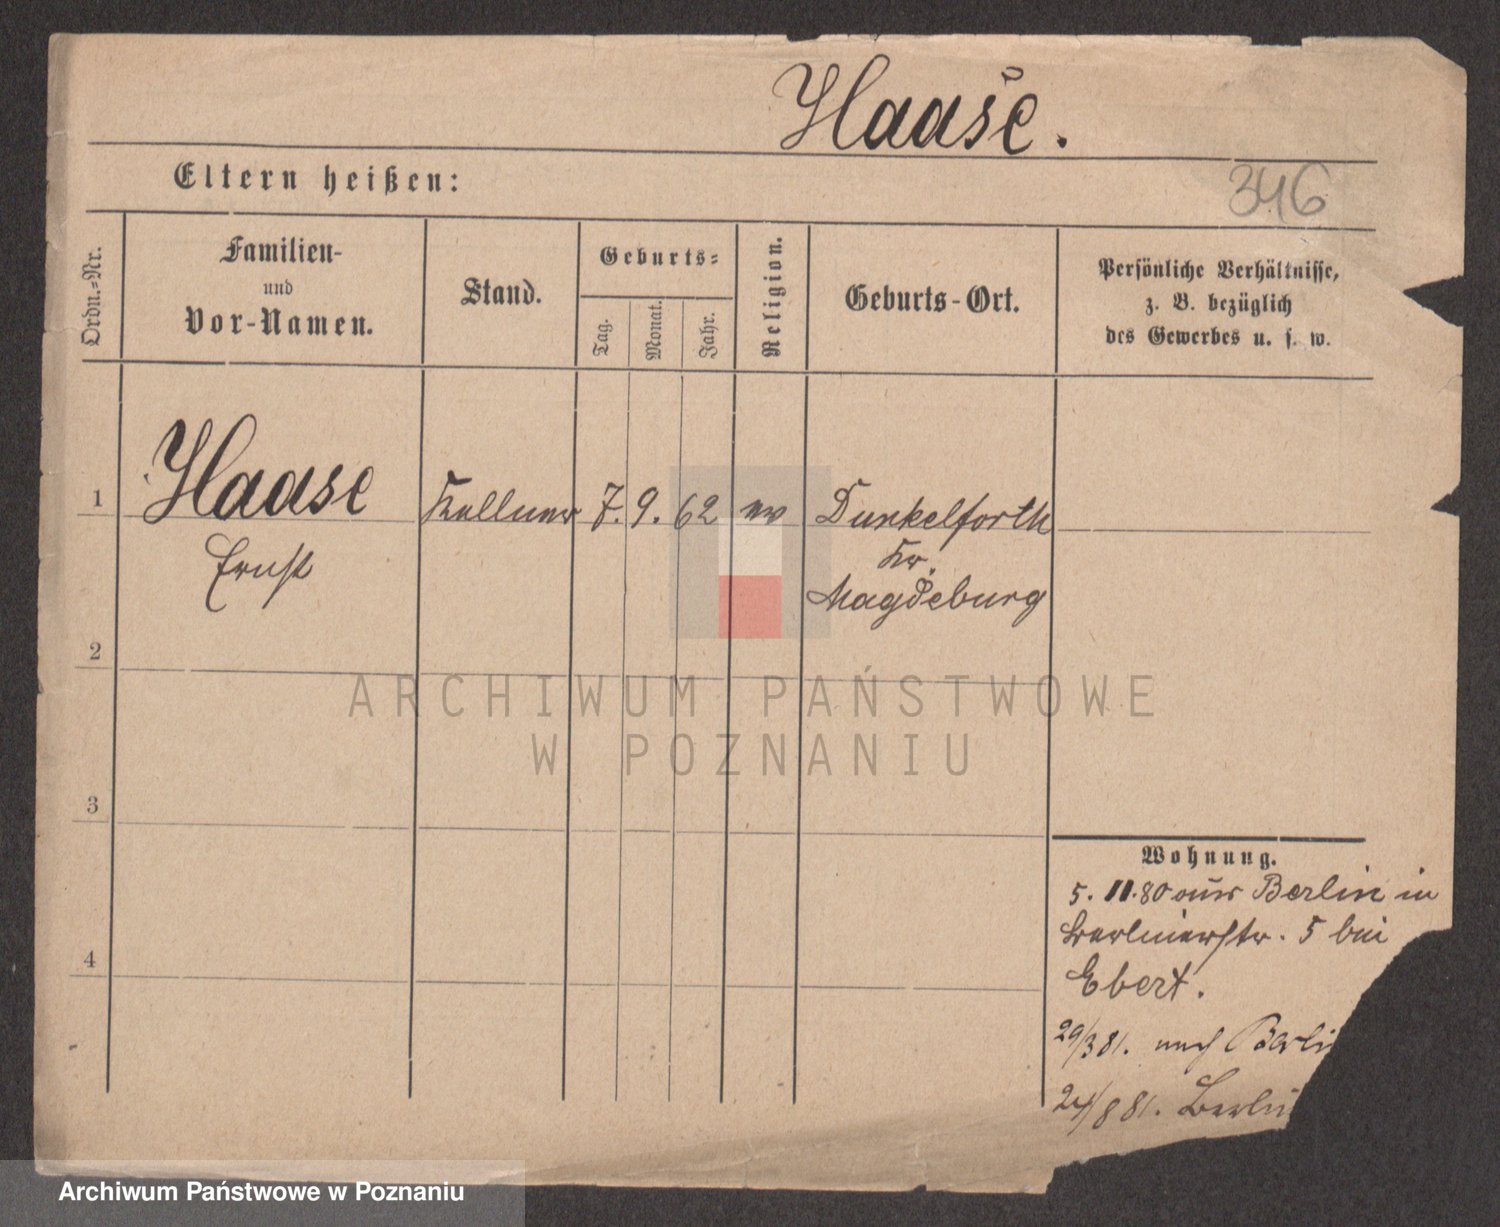 Haase.
Eltern heißen:
346
Ordn.-Nr.
Familien-
und
Vor-Namen.
Stand.
Geburts-
Tag.
Monat.
Jahr.
Religion.
Geburts-Ort.
Persönliche Verhältnisse,
z. B. bezüglich
des Gewerbes u. s. w.
1
Haase
Ernst
Kellner
7. 9. 62
ev
Dunkelforth
Kr.
Magdeburg
2
3
4
Wohnung.
5. 11. 80 aus Berlin in
Berlinerstr. 5 bei
Ebert.
29/3 81. nach Berli
24/8 81. Berlin
ARCHIWUM PAŃSTWOWE
W POZNANIU
Archiwum Państwowe w Poznaniu